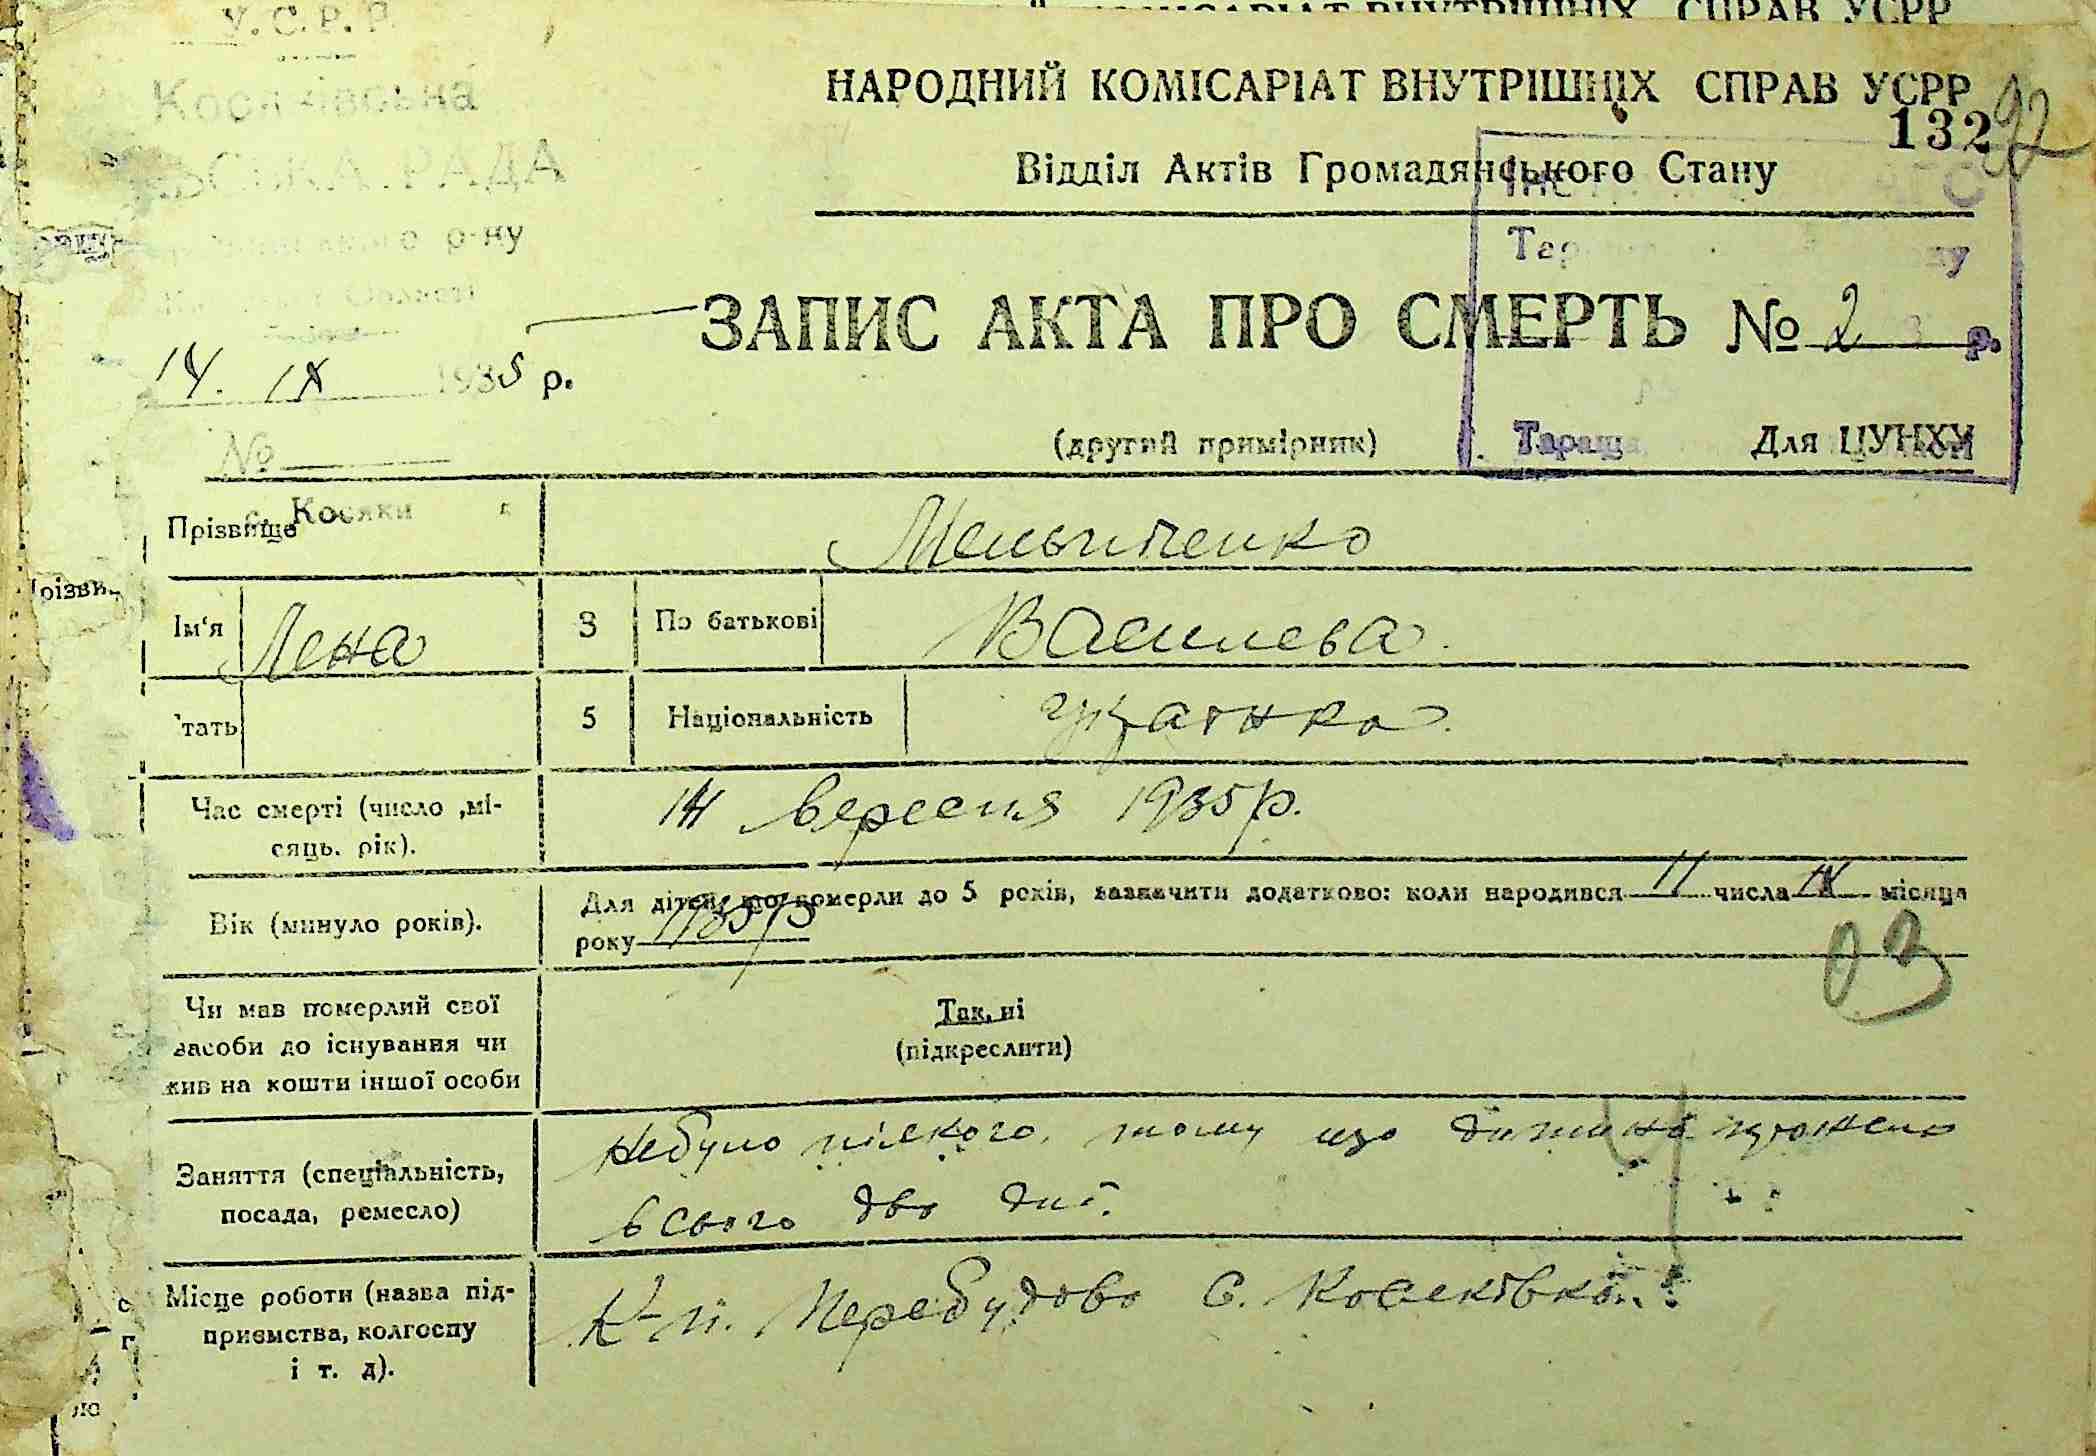 У.С.Р.Р.
НАРОДНИЙ КОМІСАРІАТ ВНУТРІШНІХ СПРАВ УСРР
132
92
РАДА
Відділ Актів Громадянського Стану
р-ну
ЗАПИС АКТА ПРО СМЕРТЬ № 2
р.
14. IX 1935 р.
№
(другий примірник)
Тараща
Для ЦУНХУ
Прізвище
с. Косяки
Мельниченко
Ім'я
Лена
3
По батькові
Василева
тать
5
Національність
украінка
Час смерті (число ,мі-
сяць. рік).
14 вересня 1935 р.
Вік (минуло років).
Для дітей, що померли до 5 років, зазначити додатково: коли народився 11 числа IX місяця
року 1935
03
Чи мав померлий свої
засоби до існування чи
жив на кошти іншої особи
Так, ні
(підкреслити)
Заняття (спеціальність,
посада, ремесло)
Небуло ніякого, тому що дитина
всього два дні.
Місце роботи (назва під-
приємства, колгоспу
і т. д).
К-п. Перебудова С. Косяківка